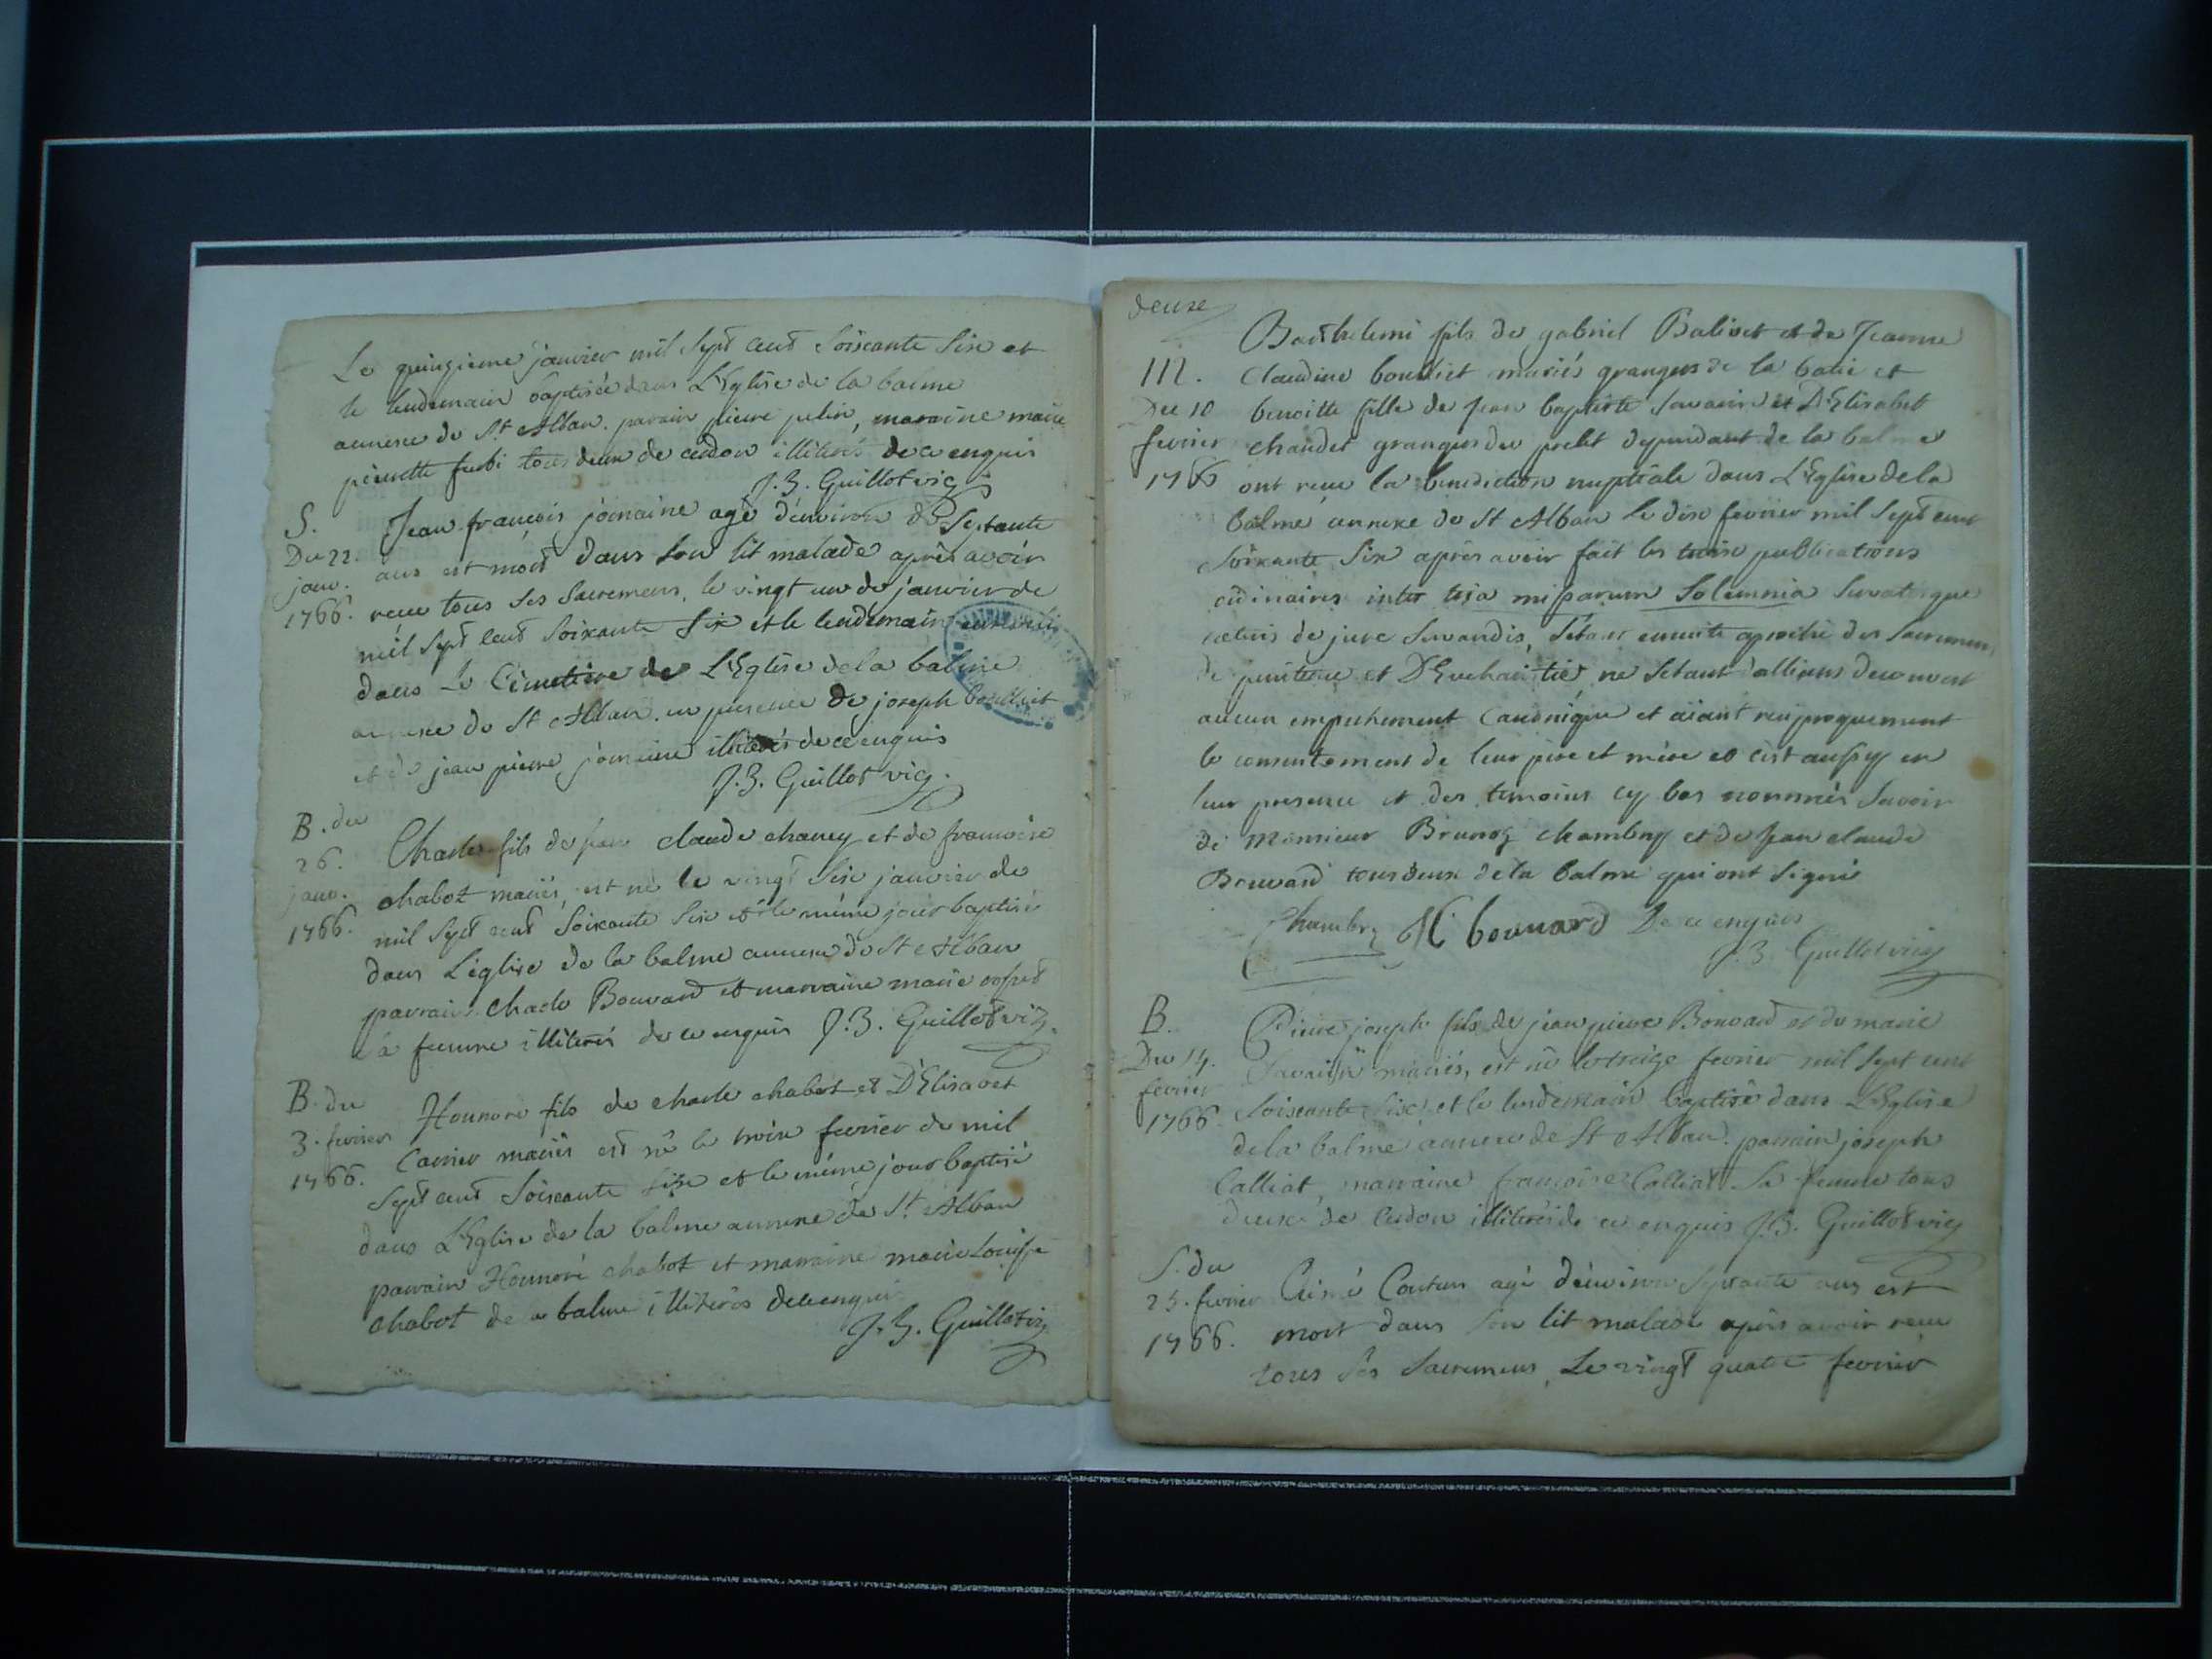 Le quinzieme janvier mil sept cent soixante six et
le lendemain baptisée dans L'Eglise de la balme
annexe de St Alban. parain pierre pelin, maraine marie
pernette tous deux de cerdon illiterés de ce enquis
J.B. Guillot vic
S.
Du 22.
janv.
1766.
Jean françois jomaine agé d'environ de septante
ans est mort dans son lit malade après avoir
receu tous ses sacremens, le vingt un de janvier de
mil sept cent soixante six et le lendemain enterré
dans le Cimetiere de L'Eglise de la balme
annexe de St Alban. en presence de joseph boulliet
et de jean pierre jomaine illiterés de ce enquis
J.B. Guillot vic.
B. du
26.
janv.
1766.
Charles fils de jean claude chaney et de francoise
chabot mariés, est né le vingt six janvier de
mil sept cent soixante six et le même jour baptisé
dans L'église de la balme annexe de St Alban
parrain charle Bouvard et marraine marie
sa femme illiterés de ce enquis J.B. Guillot vic.
B. du
3. fevrier
1766.
Honnoré fils de charle chabot et D'Elisabet
Carrier mariés est né le trois fevrier de mil
sept cent soixante six et le même jour baptisé
dans L'Eglise de la balme annexe de St Alban
parrain Honnoré chabot et marraine marie Louise
chabot de la balme illiterés de ce enquis
J.B. Guillot vic
deuxe
M.
Du 10
fevrier
1766
Barthelemi fils de gabriel Balivet et de Jeanne
Claudine boulliet mariés grangers de la batie et
benoitte fille de jean baptiste savarin et D'Elisabet
chaudet grangers du dependant de la balme
ont receu la benediction nuptiale dans L'Eglise de la
balme annexe de St Alban le dix fevrier mil sept cent
soixante six après avoir fait les trois publications
ordinaires inter solemnia servatisque
ceteris de jure servandis, s'étant ensuite aproché des sacremens
de penitence et D'Euchairistie ne s'etant d'allieurs decouvert
aucun empechement Canonique et aiant reciproquement
le consentement de leur père et mère et c'est aussy en
leur presence et des temoins cy bas nommés savoir
de Monsieur chambry et de jean claude
Bouvard tous deux de la balme qui ont signé
Chambry JC bouuard De ce enquis
J.B. Guillot vic
B.
Du 14.
fevrier
1766.
Pierre joseph fils de jean pierre Bouvard et de marie
savarin mariés, est né le treize fevrier mil sept cent
soixante six et le lendemain baptisé dans L'Eglise
de la balme annexe de St Alban. parrain joseph
Calliat, marraine francoise Calliat sa femme tous
deux de cerdon illiterés de ce enquis J.B. Guillot vic
S. du
25. fevrier
1766.
Aimé Couturi agé d'environ septante ans est
mort dans son lit malade après avoir receu
tous ses sacremens, Le vingt quatre fevrier